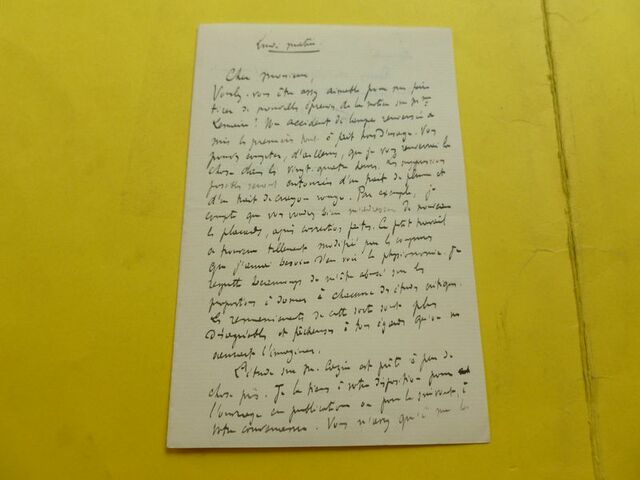 Lundi matin.
Cher Monsieur,
Voulez-vous être assez aimable pour me faire
tirer de nouvelles épreuves de la notice sur Mme
Lemaire? Un accident de lampe renversée a
mis les premières tout à fait hors d'usage. Vous
pouvez compter, d'ailleurs, que je vous renverrai la
chose dans les vingt-quatre heures. Les suppressions
possibles seront entourées d'un trait de plume et
d'un trait de crayon rouge. Par exemple, je
compte que vous voudrez bien m'adresser de nouveau
les placards, après corrections faites. Ce petit travail
a tellement modifié par les coupures
que j'aurai besoin d'en voir la physionomie. Je
regrette beaucoup de m'être abusé sur les
proportions à donner à chacune des études critiques.
Les remaniements de cette sorte sont plus
désagréables et fâcheuses à tous égards qu'on ne
l'imaginer.
L'étude sur M. Cazin est prête à peu de
chose près. Je la tiens à votre disposition pour
l'ouvrage en publication ou pour le suivant, à
votre convenance. Vous n'avez qu'à me le